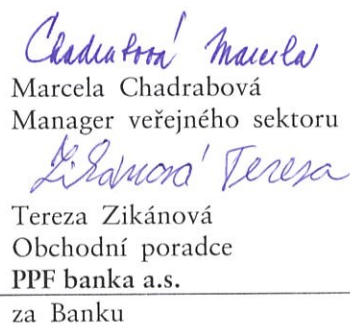 Chadrabová Marcela
Marcela Chadrabová
Manager veřejného sektoru
Zikánová Tereza
Tereza Zikánová
Obchodní poradce
PPF banka a.s.
za Banku